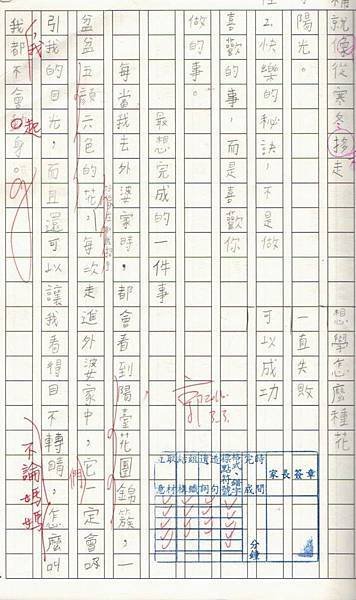 就像從寒冬捎走
想學怎麼種花
陽光。
一直失敗
2.快樂的秘訣，不是做
可以成功
喜歡的事，而是喜歡你
做的事。
最想完成的一件事
每當我去外婆家時，都會看到陽臺花團錦簇，一
盆盆五顏六色的花，每次走進外婆家中，它一定會吸
們
引我的目光，而且還可以讓我看得目不轉睛，怎麼叫
不論媽媽
我都不會起身。
我
家長簽章
完成時間
分鐘
格式、錯字
標點符號
造句
遣詞
組織
結構
取材
立意